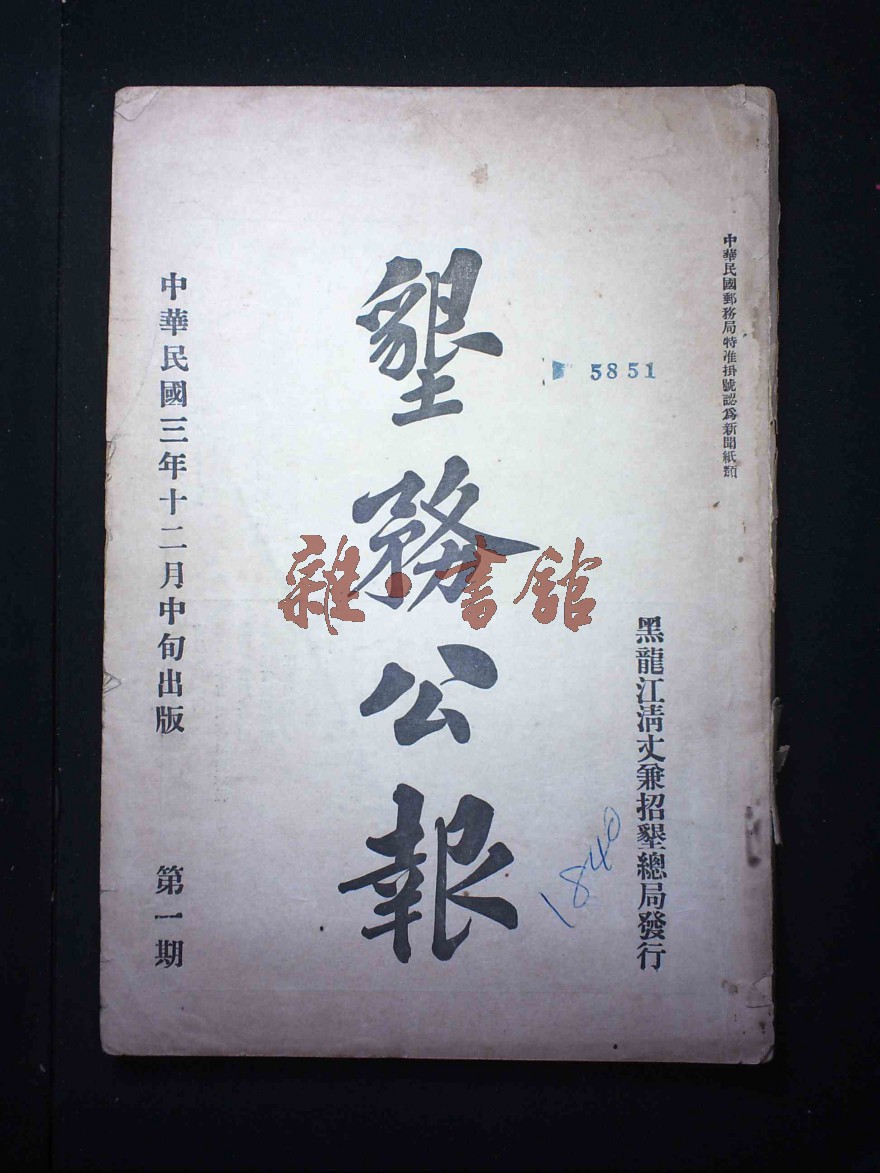 中華民國郵務局特准掛號認爲新聞紙類
黑龍江清丈兼招墾總局發行
5851
1840
墾務公報
雜·書館
中華民國三年十二月中旬出版
第一期